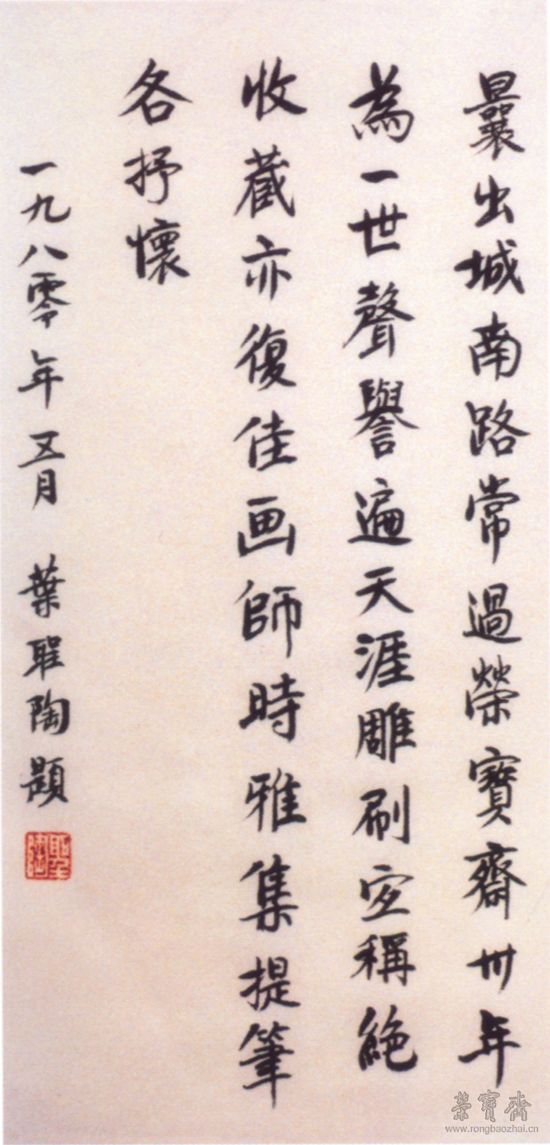 曩出城南路常過榮寶齋卅年
為一世聲譽遍天涯雕刷定稱絕
收藏亦復佳画師時雅集提筆
各抒懷
一九八零年五月 葉聖陶題
聖陶
榮寶齋
www.rongbaozhai.cn